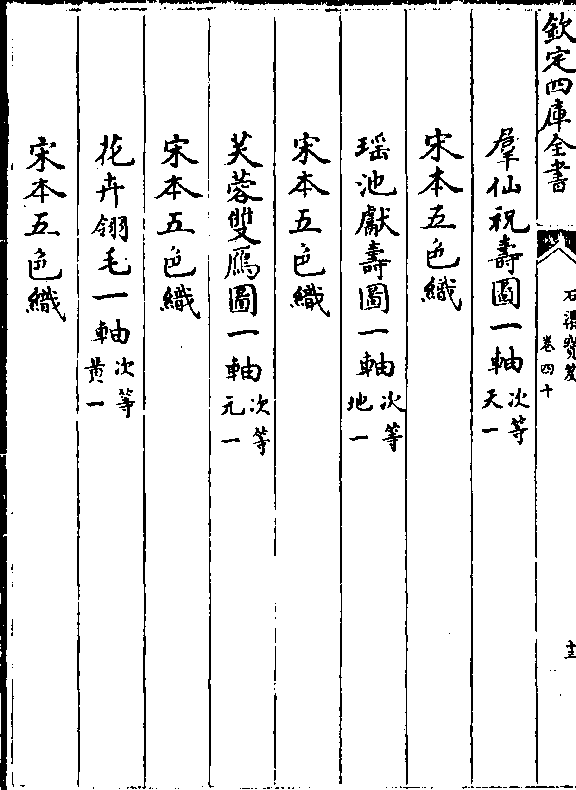 欽定四庫全書
石渠寳笈
卷四十
十三
羣仙祝壽圖一軸次等天一
宋本五色織
瑶池獻壽圖一軸次等地一
宋本五色織
芙蓉雙鴈圖一軸次等元一
宋本五色織
花卉翎毛一軸次等黄一
宋本五色織